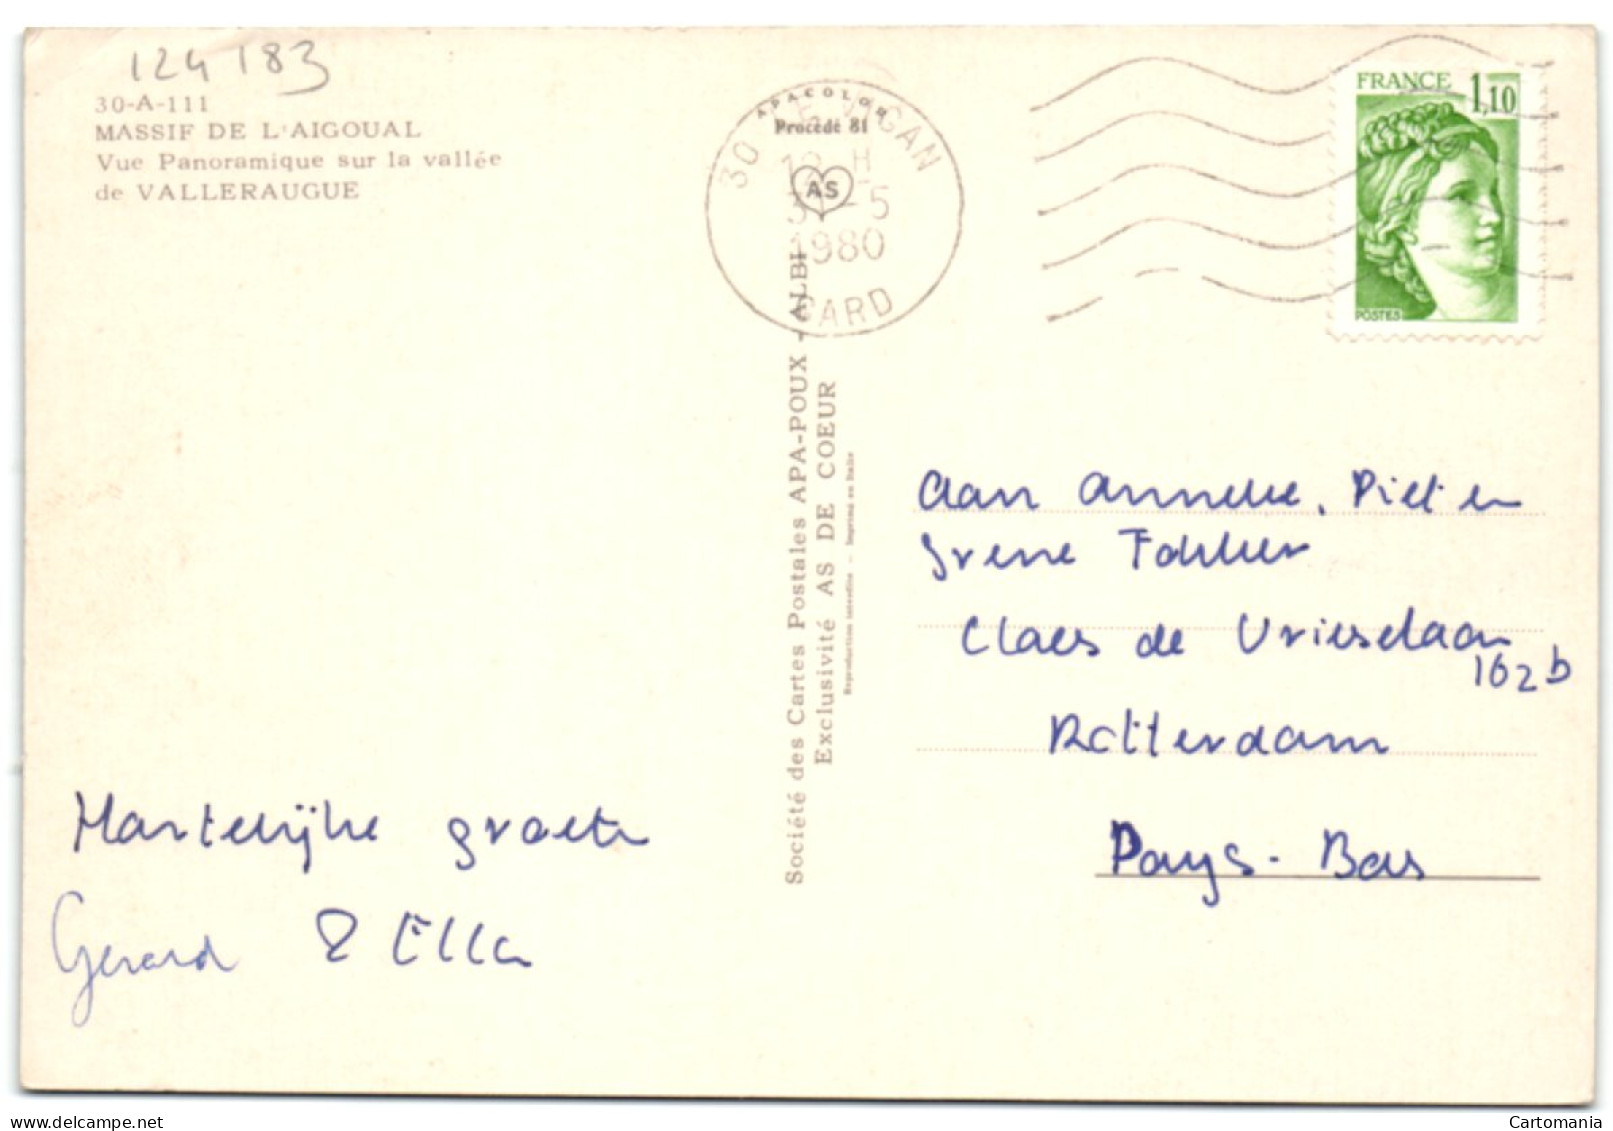 124 183
30-A-111
MASSIF DE L'AIGOUAL
Vue Panoramique sur la vallée
de VALLERAUGUE
APACOLOR
Procédé 81
AS
30 LE VIGAN
18 H
31-5
1980
GARD
FRANCE 1,10
POSTES
Société des Cartes Postales APA-POUX - ALBI
Exclusivité AS DE COEUR
Reproduction interdite - Imprimé en Italie
aan Anneke, Piet en
Irene Fokker
Claes de Vrieselaan
162 b
Rotterdam
Pays-Bas
Hartelijke groeten
Gerard & Ella
Cartomania